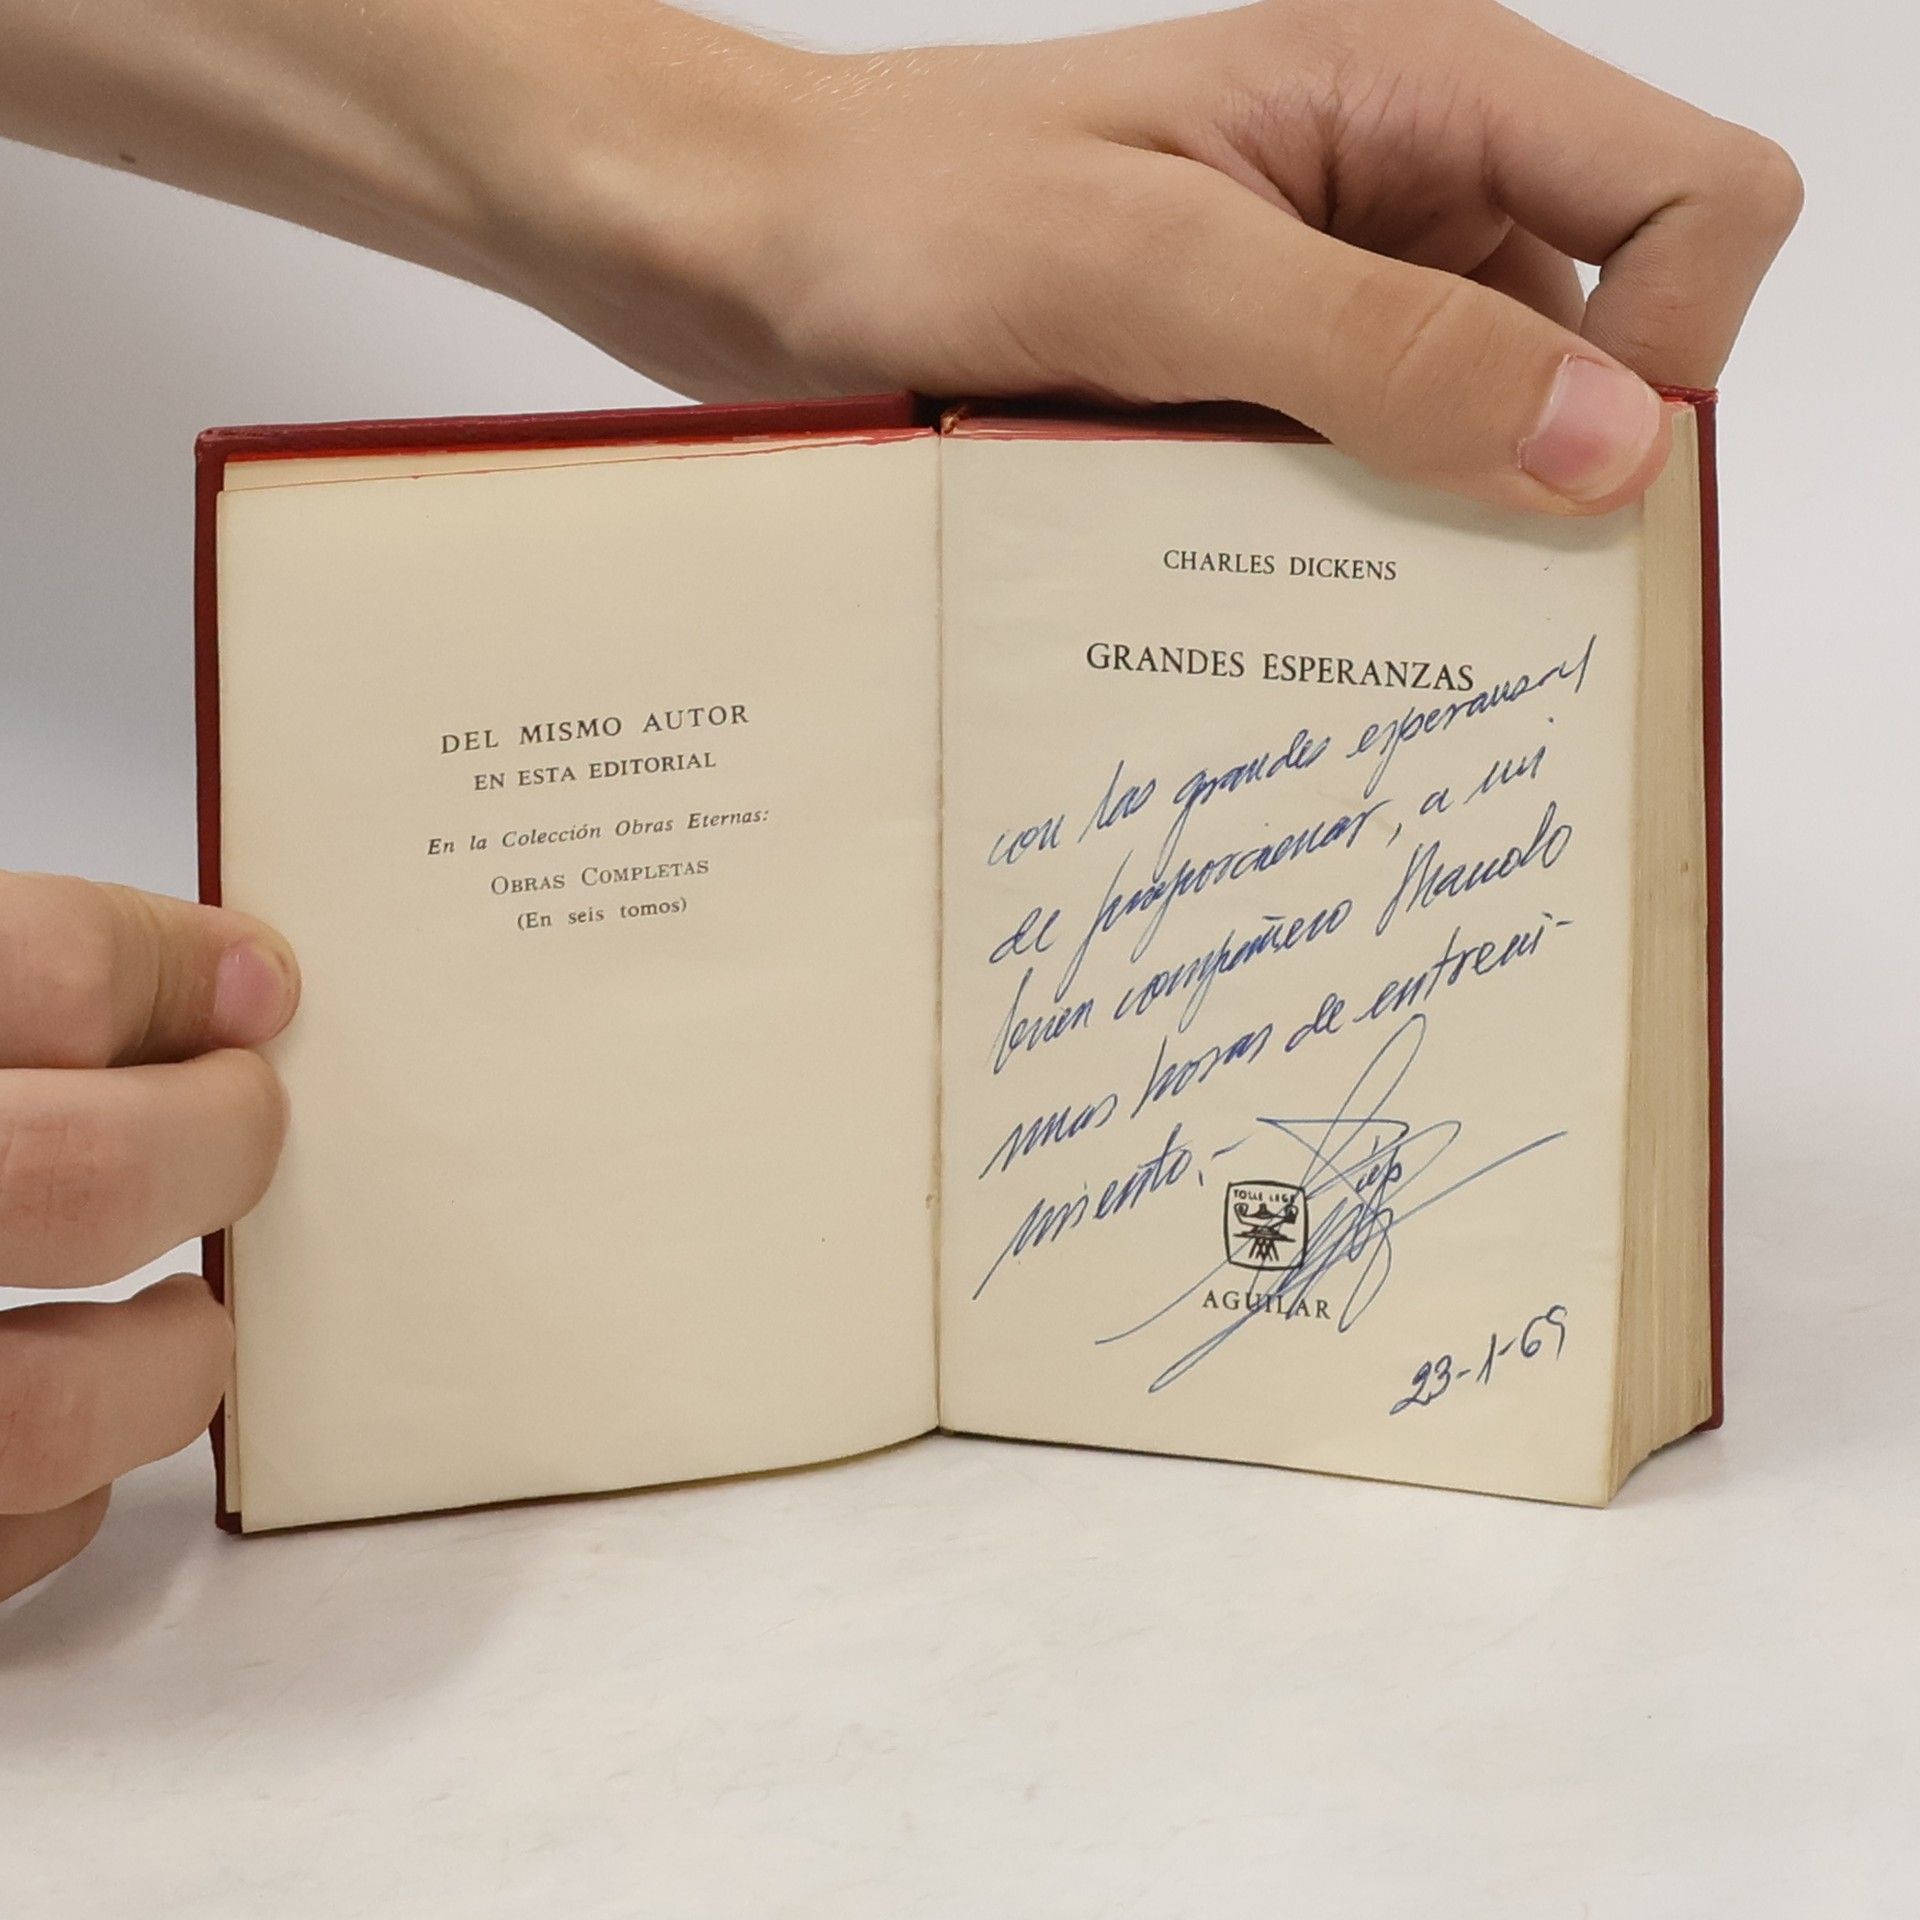 DEL MISMO AUTOR
EN ESTA EDITORIAL
En la Colección Obras Eternas:
OBRAS COMPLETAS
(En seis tomos)
CHARLES DICKENS
GRANDES ESPERANZAS
con las grandes esperanzas
de proporcionar, a mi
buen compañero Manolo
unas horas de entreni-
miento.-
TOLLE LEGE
AGUILAR
23-1-69